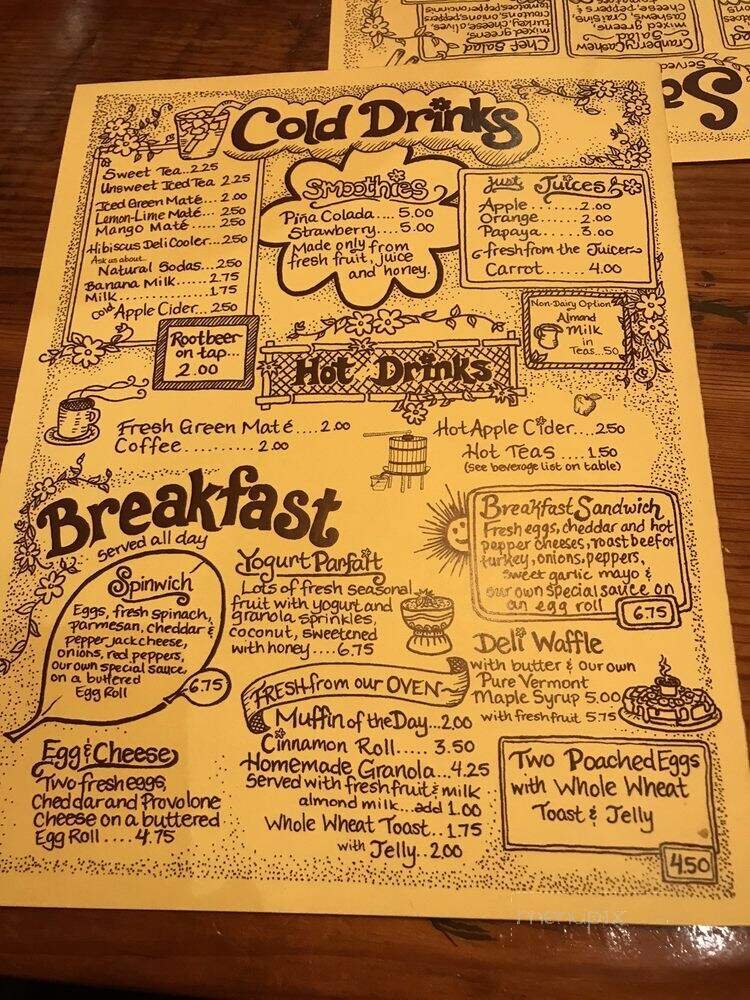 Chef Salad
mixed greens,
turkey, cheese, olives,
croutons, onions, peppers
Cranberry Cashew
Salad
mixed greens,
cashews, Craisins,
cheese, peppers &
Served
Sa
Cold Drinks
Sweet Tea...2.25
Unsweet Iced Tea 2.25
Iced Green Maté.... 2.00
Lemon-Lime Maté.... 2.50
Mango Maté ..... 2.50
Hibiscus Deli Cooler...2.50
Ask us about...
Natural Sodas...2.50
Banana Milk.......2.75
Milk................1.75
cold Apple Cider...2.50
Smoothies
Piña Colada.... 5.00
Strawberry.... 5.00
Made only from
fresh fruit, juice
and honey.
Just Juices
Apple.........2.00
Orange.......2.00
Papaya.......3.00
fresh from the Juicer
Carrot.......4.00
Rootbeer
on tap...
2.00
Non-Dairy Option
Almond
milk
in
Teas...50
Hot Drinks
Fresh Green Maté....2.00
Coffee..........2.00
Hot Apple Cider....2.50
Hot Teas ....1.50
(See beverage list on table)
Breakfast
served all day
Spinwich
Eggs, fresh spinach,
parmesan, cheddar &
pepper jack cheese,
onions, red peppers,
our own special sauce,
on a buttered
Egg Roll
6.75
Yogurt Parfait
Lots of fresh seasonal
fruit with yogurt and
granola sprinkles,
coconut, sweetened
with honey....6.75
Breakfast Sandwich
Fresh eggs, cheddar and hot
pepper cheeses, roast beef or
turkey, onions, peppers,
sweet garlic mayo &
our own special sauce on
an egg roll
6.75
Deli Waffle
with butter & our own
Pure Vermont
Maple Syrup 5.00
with fresh fruit 5.75
FRESH from our OVEN
Muffin of the Day...2.00
Cinnamon Roll..... 3.50
Homemade Granola...4.25
Served with fresh fruit & milk
almond milk...add 1.00
Whole Wheat Toast..1.75
with Jelly..2.00
Egg & Cheese
Two fresh eggs,
Cheddar and Provolone
Cheese on a buttered
Egg Roll.... 4.75
Two Poached Eggs
with Whole Wheat
Toast & Jelly
4.50
menupix